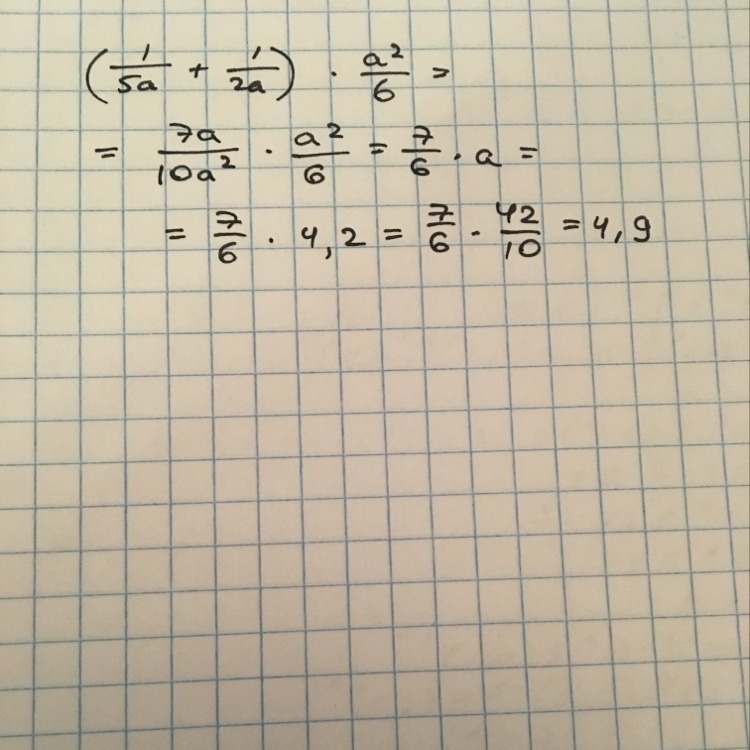 (1/5a + 1/2a) · a²/6 =
= 7a/10a² · a²/6 = 7/6 · a =
= 7/6 · 4,2 = 7/6 · 42/10 = 4,9